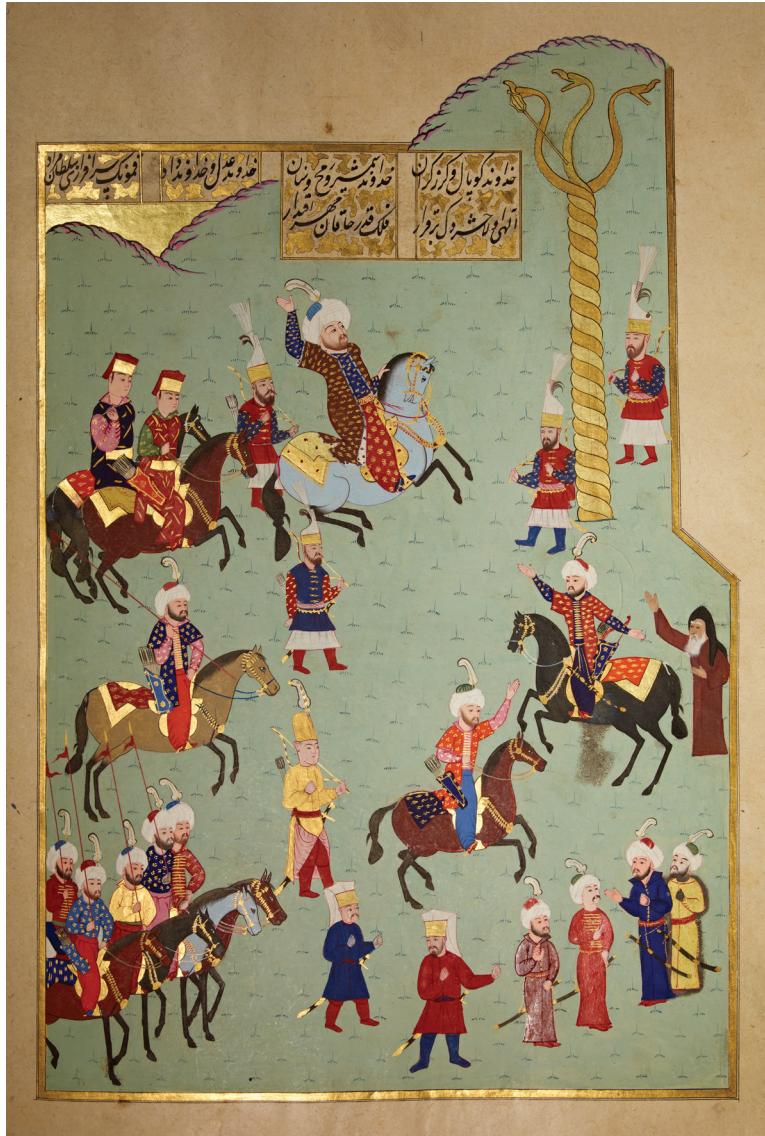 خداوند کوپال و کرز کران خداوند شمشیر و رمح و سنان خداوند عدل و خداوند داد قمونک سرافرازی سلطان مراد
الهی اولا حشره دک برقرار فلک قدر خاقان مهر اقتدار